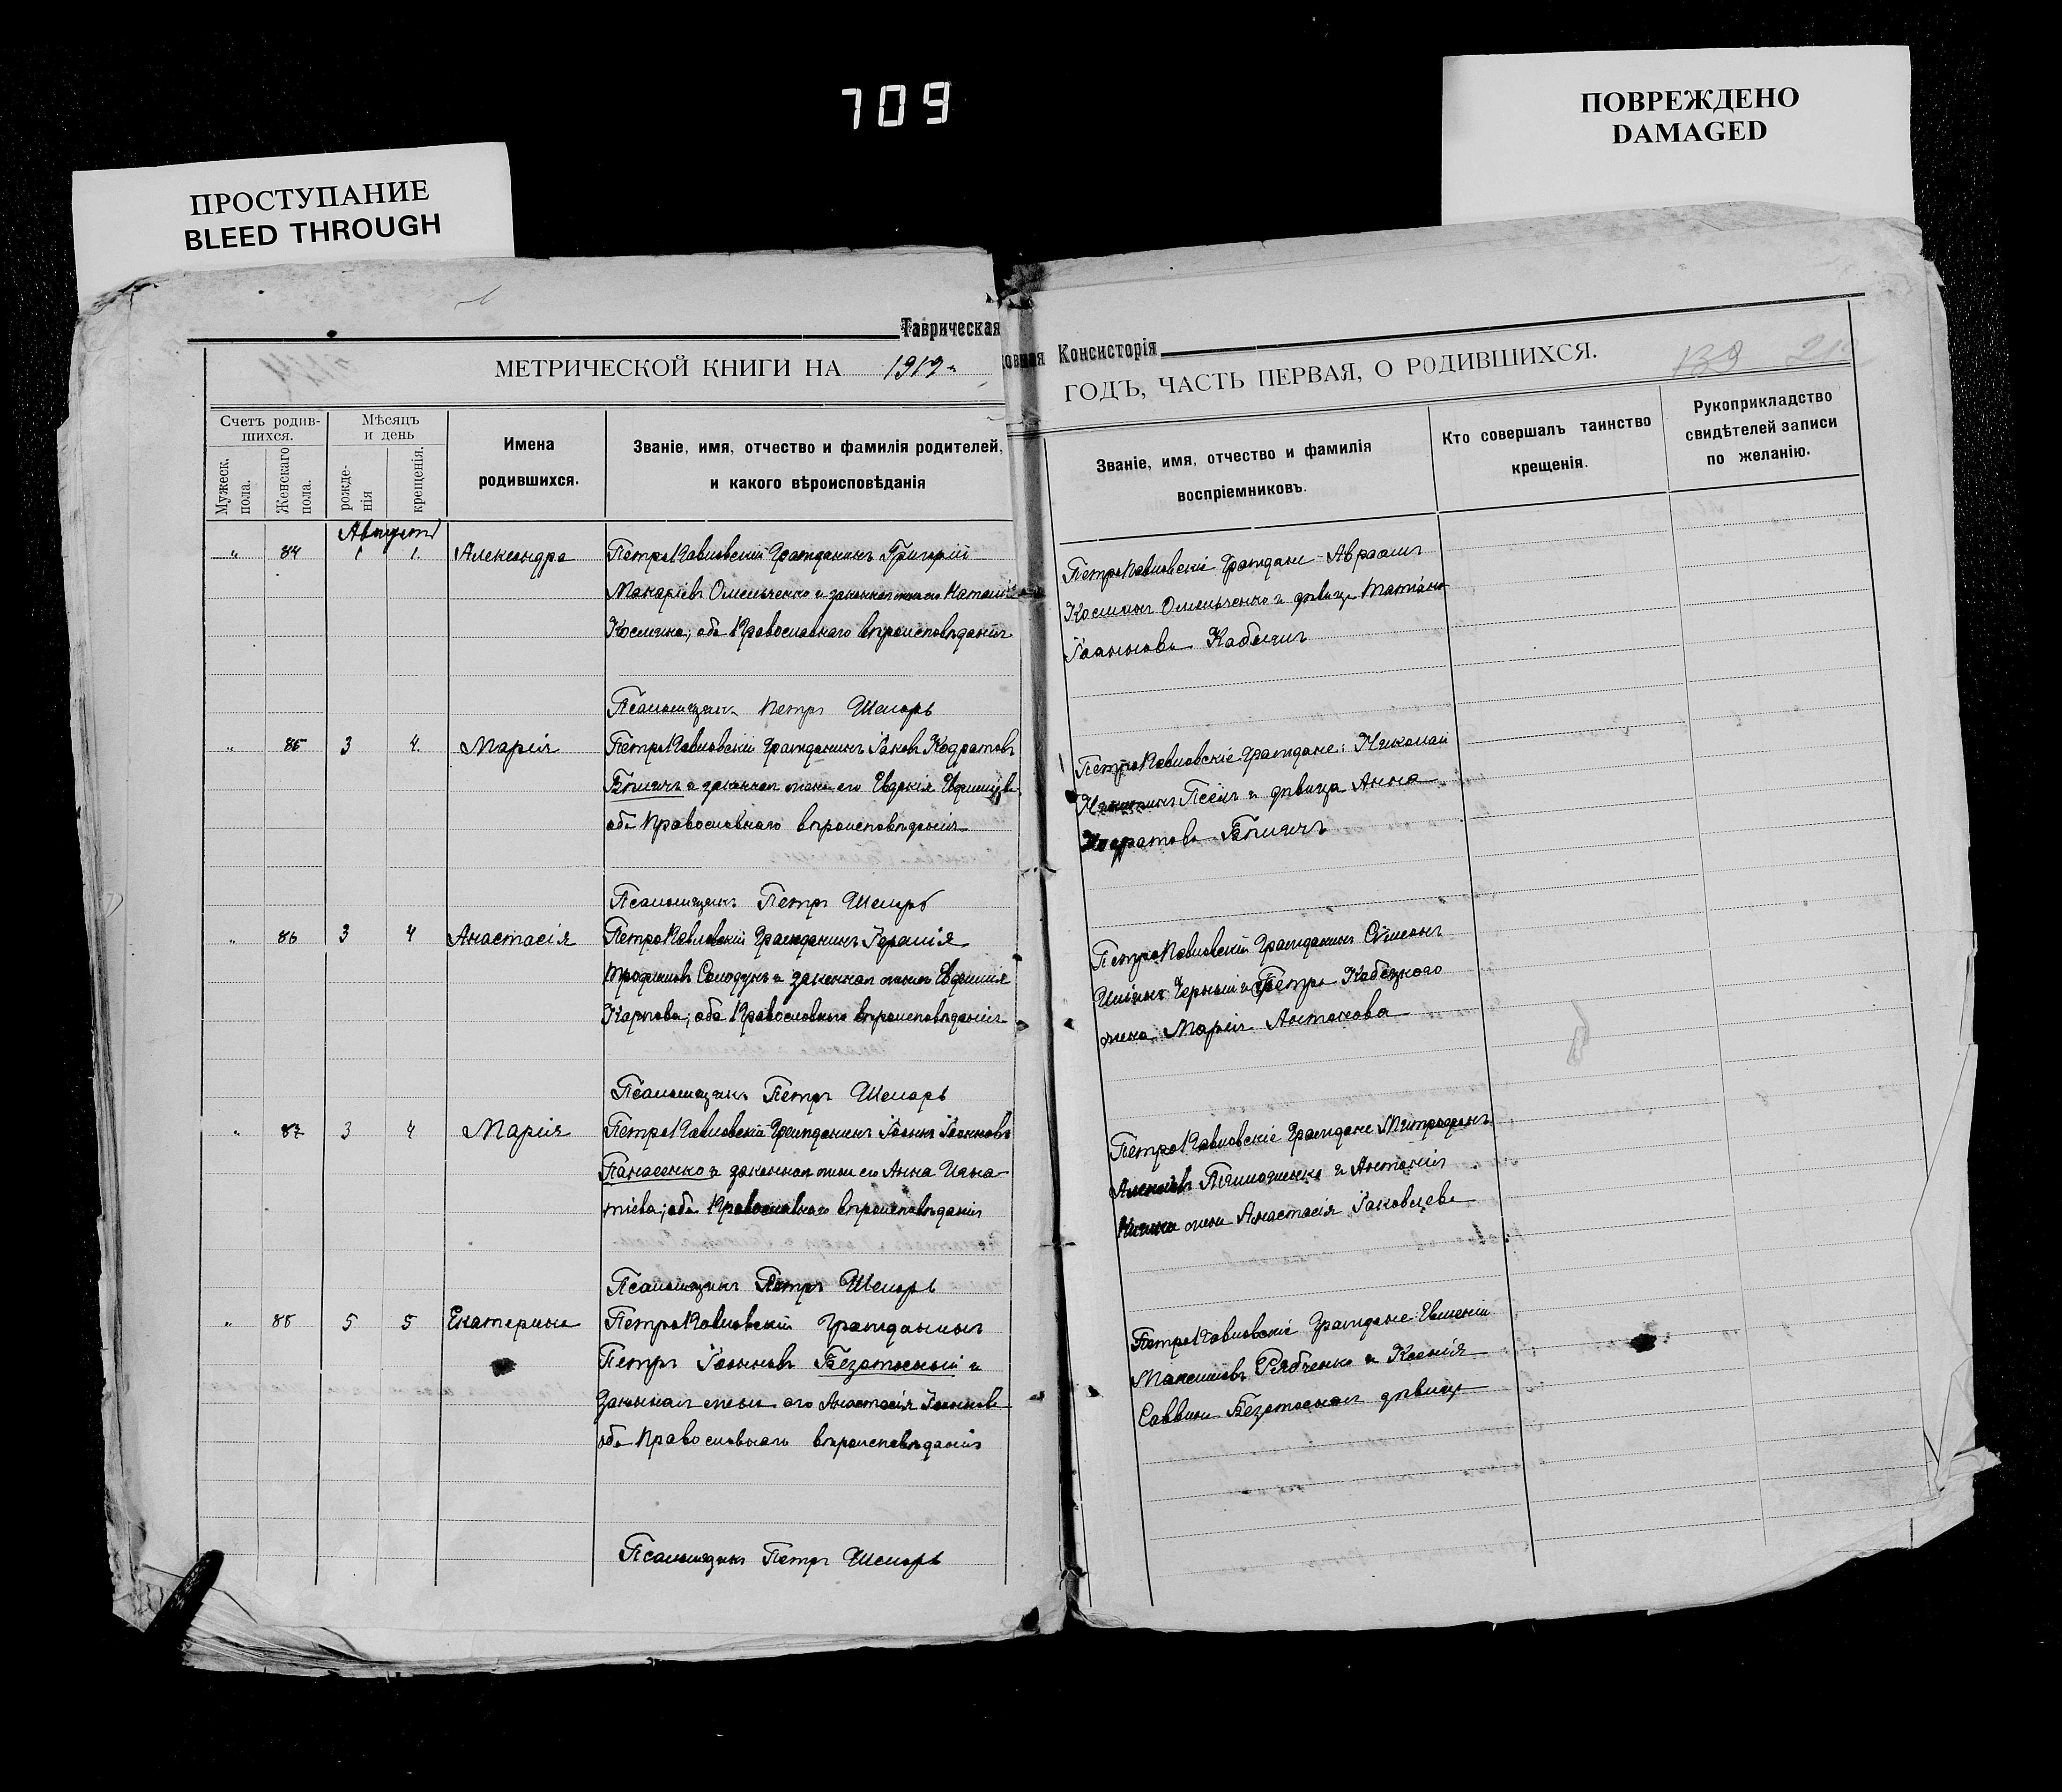 709
ПОВРЕЖДЕНО
DAMAGED
ПРОСТУПАНИЕ
BLEED THROUGH
Таврическая
овная Консисторія
МЕТРИЧЕСКОЙ КНИГИ НА 1919
ГОДЪ, ЧАСТЬ ПЕРВАЯ, О РОДИВШИХСЯ.
139
Счетъ родив-
шихся.
Мужеск.
пола.
Женскаго
пола.
Мѣсяцъ
и день
рожде-
нія
крещенія.
Имена
родившихся.
Званіе, имя, отчество и фамилія родителей,
и какого вѣроисповѣданія
Званіе, имя, отчество и фамилія
воспріемниковъ.
Кто совершалъ таинство
крещенія.
Рукоприкладство
свидѣтелей записи
по желанію.
Августъ
" 84 1 1. Александра Петро Павловскій Гражданинъ Григорій
Макаріевъ Омельченко и законная жена его Наталія
Космина; оба Православнаго вѣроисповѣданія
Псаломщикъ Петръ Шеларь
Петро Павловскіе Граждане Авраамъ
Косминъ Омельченко и дѣвица Татіана
Іоаннова
" 85 3 4. Марія Петро Павловскій Гражданинъ Іаковъ Кодратовъ
и законная жена его Евдокія
оба Православнаго вѣроисповѣданія
Псаломщикъ Петръ Шеларь
Петро Павловскіе Граждане: Николай
и дѣвица Анна
" 86 3 4 Анастасія Петро Павловскій Гражданинъ
Трофимовъ Солодунъ и законная жена Евфимія
Карпова; оба Православнаго вѣроисповѣданія
Псаломщикъ Петръ Шеларь
Петро Павловскій Гражданинъ Сѵмеонъ
Черный и Петра
жена Марія Антонова
" 87 3 4 Марія Петро Павловскій Гражданинъ Іоаннъ Іоанновъ
Панасенко и законная жена его Анна Игна
тіева; оба Православнаго вѣроисповѣданія
Псаломщикъ Петръ Шеларь
Петро Павловскіе Граждане Митрофанъ
Алексѣевъ и Антонія
жена Анастасія Іаковлева
" 88 5 5 Екатерина Петро Павловскій Гражданинъ
Петръ Іоанновъ Безатосный и
законная жена его Анастасія Іоаннова
оба Православнаго вѣроисповѣданія
Псаломщикъ Петръ Шеларь
Петро Павловскіе Граждане: Евгеній
Максимовъ Рябченко и Ксенія
Саввина Безатосная дѣвица